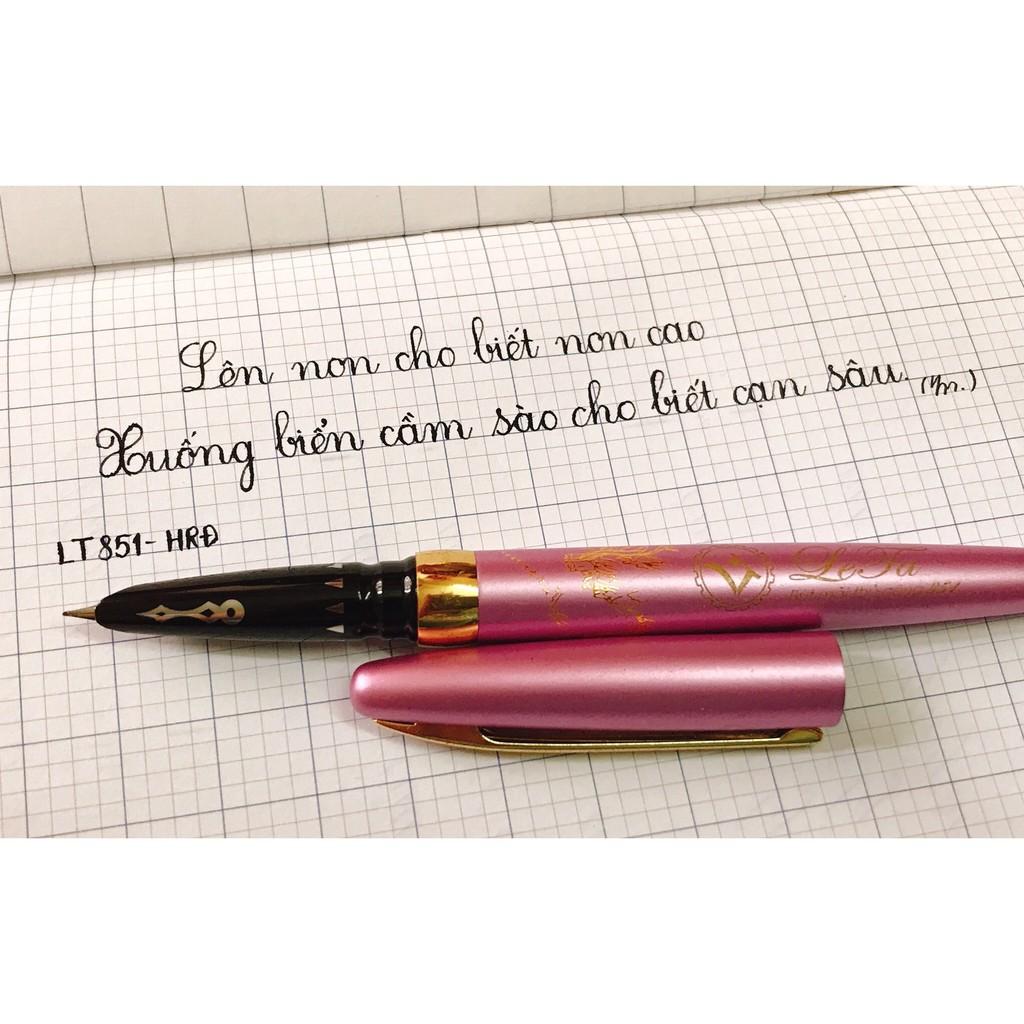 Lên non cho biết non cao
Xuống biển cầm sào cho biết cạn sâu.
LT851-HRĐ
LeTa